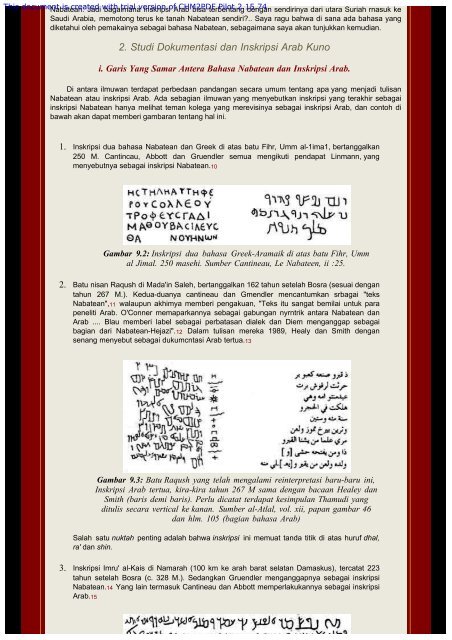 This document is created with trial version of CHM2PDF Pilot 2.15.74.
Nabatean. Jadi bagaimana inskripsi Arab bisa terbentang dengan sendirinya dari utara Suriah masuk ke
Saudi Arabia, memotong terus ke tanah Nabatean sendiri?.. Saya ragu bahwa di sana ada bahasa yang
diketahui oleh pemakainya sebagai bahasa Nabatean, sebagaimana saya akan tunjukkan kemudian.
2. Studi Dokumentasi dan Inskripsi Arab Kuno
i. Garis Yang Samar Antera Bahasa Nabatean dan Inskripsi Arab.
Di antara ilmuwan terdapat perbedaan pandangan secara umum tentang apa yang menjadi tulisan
Nabatean atau inskripsi Arab. Ada sebagian ilmuwan yang menyebutkan inskripsi yang terakhir sebagai
inskripsi Nabatean hanya melihat teman kolega yang merevisinya sebagai inskripsi Arab, dan contoh di
bawah akan dapat memberi gambaran tentang hal ini.
1. Inskripsi dua bahasa Nabatean dan Greek di atas batu Fihr, Umm al-1ima1, bertanggalkan
250 M. Cantincau, Abbott dan Gruendler semua mengikuti pendapat Linmann, yang
menyebutnya sebagai inskripsi Nabatean.10
ΗϹΤΗΛΗΑΥΤΗΦΕ
ΡΟΥϹΟΛΛΕΟΥ
ΤΡΟΦΕΥϹΓΑΔΙ
ΜΑΘΟΥΒΑϹΙΛΕΥϹ
ΘΑ ΝΟΥΗΝΩΝ
Gambar 9.2: Inskripsi dua bahasa Greek-Aramaik di atas batu Fihr, Umm
al Jimal. 250 masehi. Sumber Cantineau, Le Nabateen, ii :25.
2. Batu nisan Raqush di Mada'in Saleh, bertanggalkan 162 tahun setelah Bosra (sesuai dengan
tahun 267 M.). Kedua-duanya cantineau dan Gmendler mencantumkan srbagai "teks
Nabatean",11 walaupun akhirnya memberi pengakuan, "Teks itu sangat bemilai untuk para
peneliti Arab. O'Conner memaparkannya sebagai gabungan nyrntrik antara Nabatean dan
Arab .... Blau memberi label sebagai perbatasan dialek dan Diem menganggap sebagai
bagian dari Nabatean-Hejazi".12 Dalam tulisan mereka 1989, Healy dan Smith dengan
senang menyebut sebagai dukumcntasi Arab tertua.13
ذا قبرو صنعه كعبو بر
حرثت لرقوش برت
عبدمنوتو امه وهي
هلكت في الحجرو
سنة مئه وستين
وترين بيرح تموز ولعن
مري علما من يشنا القبرو
ذا ومن يفتحه حشي [و]
ولده ولعن من يقبر و[يع]لي منه
Gambar 9.3: Batu Raqush yang telah mengalami reinterpretasi baru-baru ini,
Inskripsi Arab tertua, kira-kira tahun 267 M sama dengan bacaan Healey dan
Smith (baris demi baris). Perlu dicatat terdapat kesimpulan Thamudi yang
ditulis secara vertical ke kanan. Sumber al-Atlal, vol. xii, papan gambar 46
dan hlm. 105 (bagian bahasa Arab)
Salah satu nuktah penting adalah bahwa inskripsi ini memuat tanda titik di atas huruf dhal,
ra' dan shin.
3. Inskripsi Imru' al-Kais di Namarah (100 km ke arah barat selatan Damaskus), tercatat 223
tahun setelah Bosra (c. 328 M.). Sedangkan Gruendler menganggapnya sebagai inskripsi
Nabatean.14 Yang lain termasuk Cantineau dan Abbott memperlakukannya sebagai inskripsi
Arab.15